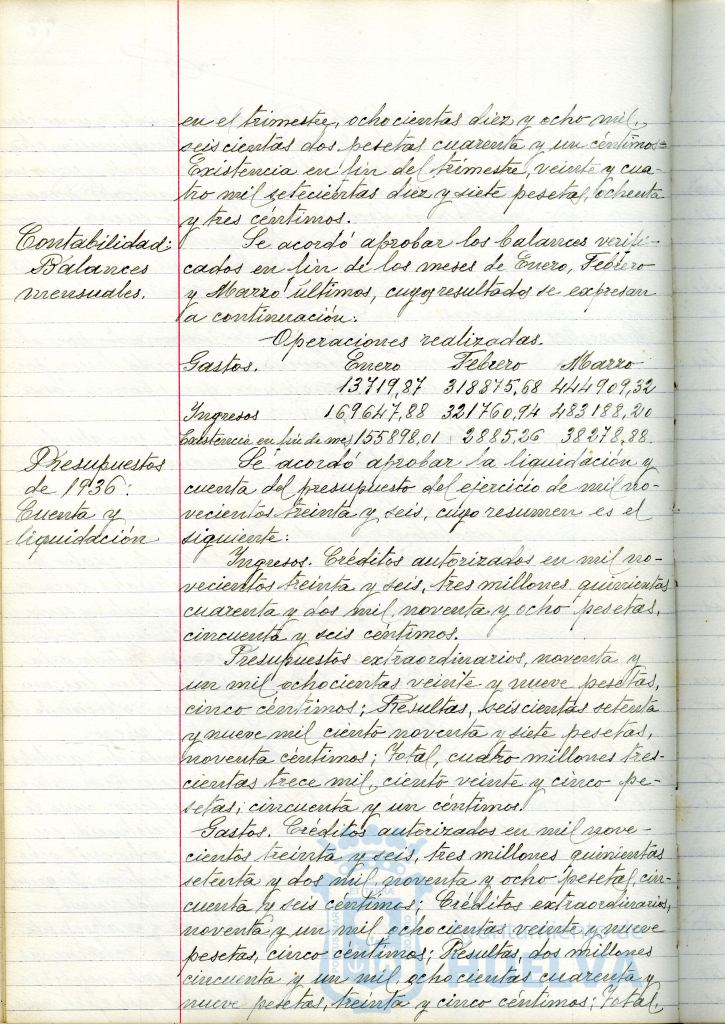 en el trimestre, ochocientas diez y ocho mil,
seiscientas dos pesetas cuarenta y un céntimos=
Existencia en fin del trimestre, veinte y cua-
tro mil setecientas diez y siete pesetas, ochenta
y tres céntimos.
Contabilidad:
Balances
mensuales.
Se acordó aprobar los balances verifi-
cados en fin de los meses de Enero, Febrero
y Marzo últimos, cuyos resultados se expresan
a continuación:
Operaciones realizadas.
Gastos. Enero Febrero Marzo
13719,87 318875,68 444909,32
Ingresos 169647,88 321760,94 483188,20
Existencia en fin de mes 155898,01 2885,26 38278,88.
Presupuestos
de 1936:
Cuenta y
liquidación
Se acordó aprobar la liquidación y
cuenta del presupuesto del ejercicio de mil no-
vecientos treinta y seis, cuyo resumen es el
siguiente:
Ingresos. Créditos autorizados en mil no-
vecientos treinta y seis, tres millones quinientas
cuarenta y dos mil, noventa y ocho pesetas,
cincuenta y seis céntimos.
Presupuestos extraordinarios, noventa y
un mil ochocientas veinte y nueve pesetas,
cinco céntimos; Resultas, seiscientas setenta
y nueve mil ciento noventa y siete pesetas,
noventa céntimos; Total, cuatro millones tres-
cientas trece mil, ciento veinte y cinco pe-
setas, cincuenta y un céntimos.
Gastos. Créditos autorizados en mil nove-
cientos treinta y seis, tres millones quinientas
setenta y dos mil, noventa y ocho pesetas, cin-
cuenta y seis céntimos; Créditos extraordinarios,
noventa y un mil ochocientas veinte y nueve
pesetas, cinco céntimos; Resultas, dos millones
cincuenta y un mil, ochocientas cuarenta y
nueve pesetas, treinta y cinco céntimos; Total,